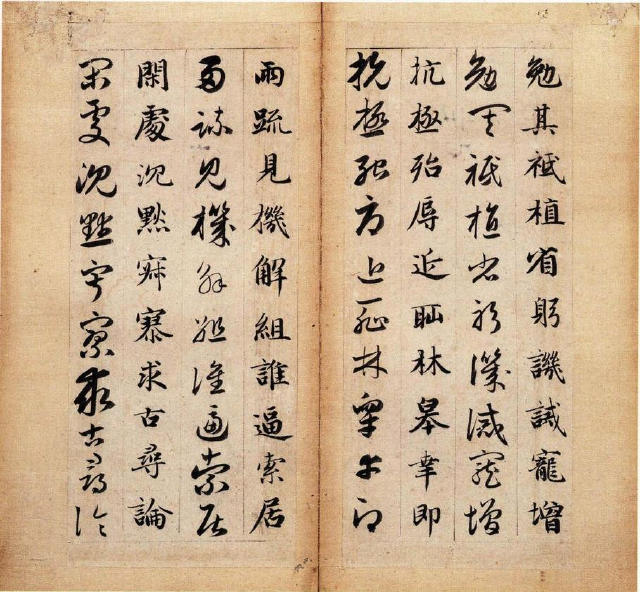 勉其祗植省躬譏誡寵增
勉其祗植省躬譏誡寵增
抗極殆辱近恥林皋幸即
抗極殆辱近恥林皋幸即
兩疏見機解組誰逼索居
兩疏見機解組誰逼索居
閑處沉默寂寥求古尋論
閑處沉默寂寥求古尋論